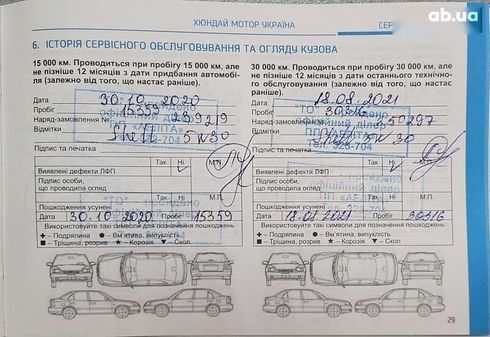 ab.ua
ХЮНДАЙ МОТОР УКРАЇНА
6. ІСТОРІЯ СЕРВІСНОГО ОБСЛУГОВУВАННЯ ТА ОГЛЯДУ КУЗОВА
15 000 км. Проводиться при пробігу 15 000 км, але
не пізніше 12 місяців з дати придбання автомобі-
ля (залежно від того, що настає
раніше).
Дата 30.10.2020
Пробіг 15359
Наряд-замовлення №
Відмітки Shell 5w30
Підпис та печатка
Так Ні М.П.
Виявлені дефекти ЛФП
Підпис особи,
що проводила огляд
Так Ні М.П.
Пошкодження усунені
Дата 30.10.2020 Пробіг 15359
Використовуйте такі символи для позначення пошкоджень
+ – Подряпина ● – Вм'ятина, випуклість
■ – Тріщина, розрив ★ – Корозія ▼ – Скол
30 000 км. Проводиться при пробігу 30 000 км, але
не пізніше 12 місяців з дати останнього технічно-
го обслуговування (залежно від того, що настає
раніше).
Дата 18.08.2021
Пробіг 30316
Наряд-замовлення № 250297
Відмітки 30
Підпис та печатка
Так Ні М.П.
Виявлені дефекти ЛФП
Підпис особи,
що проводила огляд
Так Ні М.П.
Пошкодження усунені
Дата 18.08.2021 Пробіг 30316
Використовуйте такі символи для позначення пошкоджень
+ – Подряпина ● – Вм'ятина, випуклість
■ – Тріщина, розрив ★ – Корозія ▼ – Скол
29